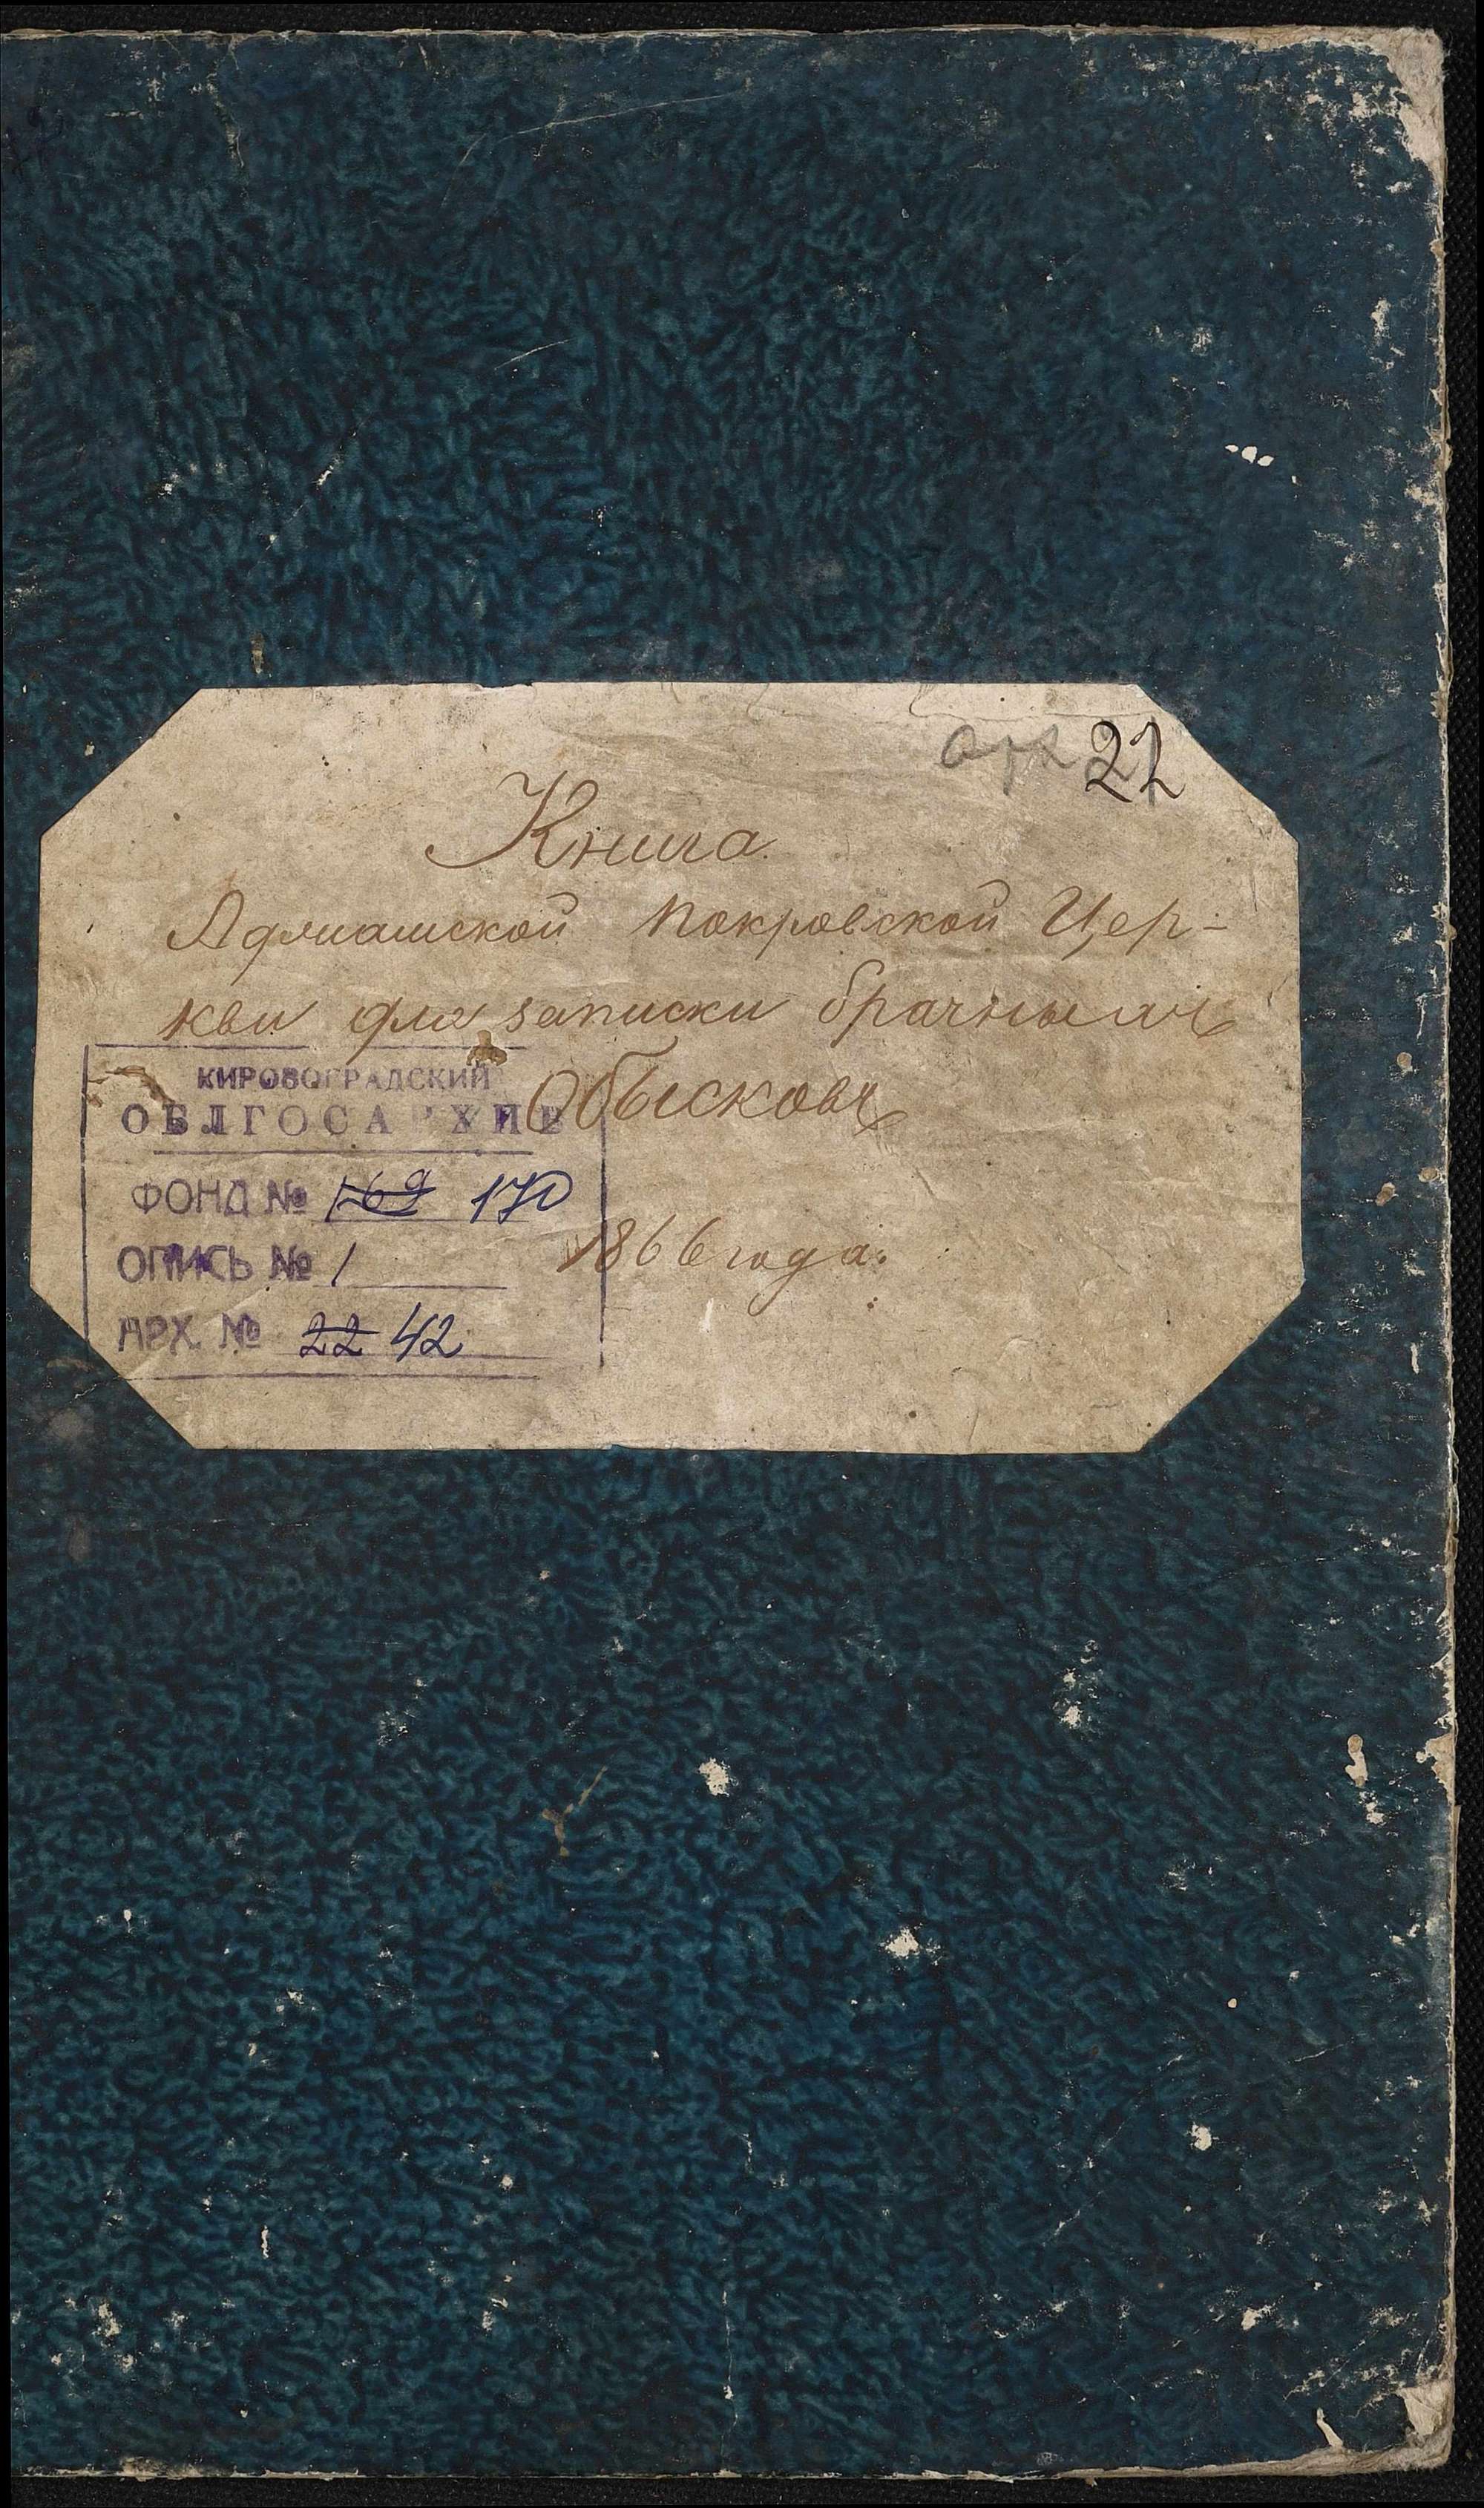 арх 22
Книга
Аджамской Покровской Цер-
кви для записки брачныхъ
Обысковъ
1866 года.
КИРОВОГРАДСКИЙ
ОБЛГОСАРХИВ
ФОНД № 169 170
ОПИСЬ № 1
АРХ. № 22 42